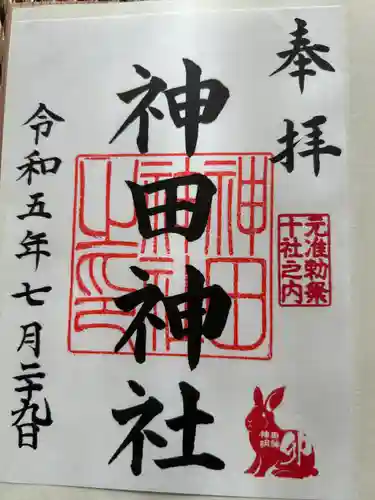 奉拝
元准勅祭
十社之内
神田神社
神田
神社
之印
卯
令和五年七月二十九日